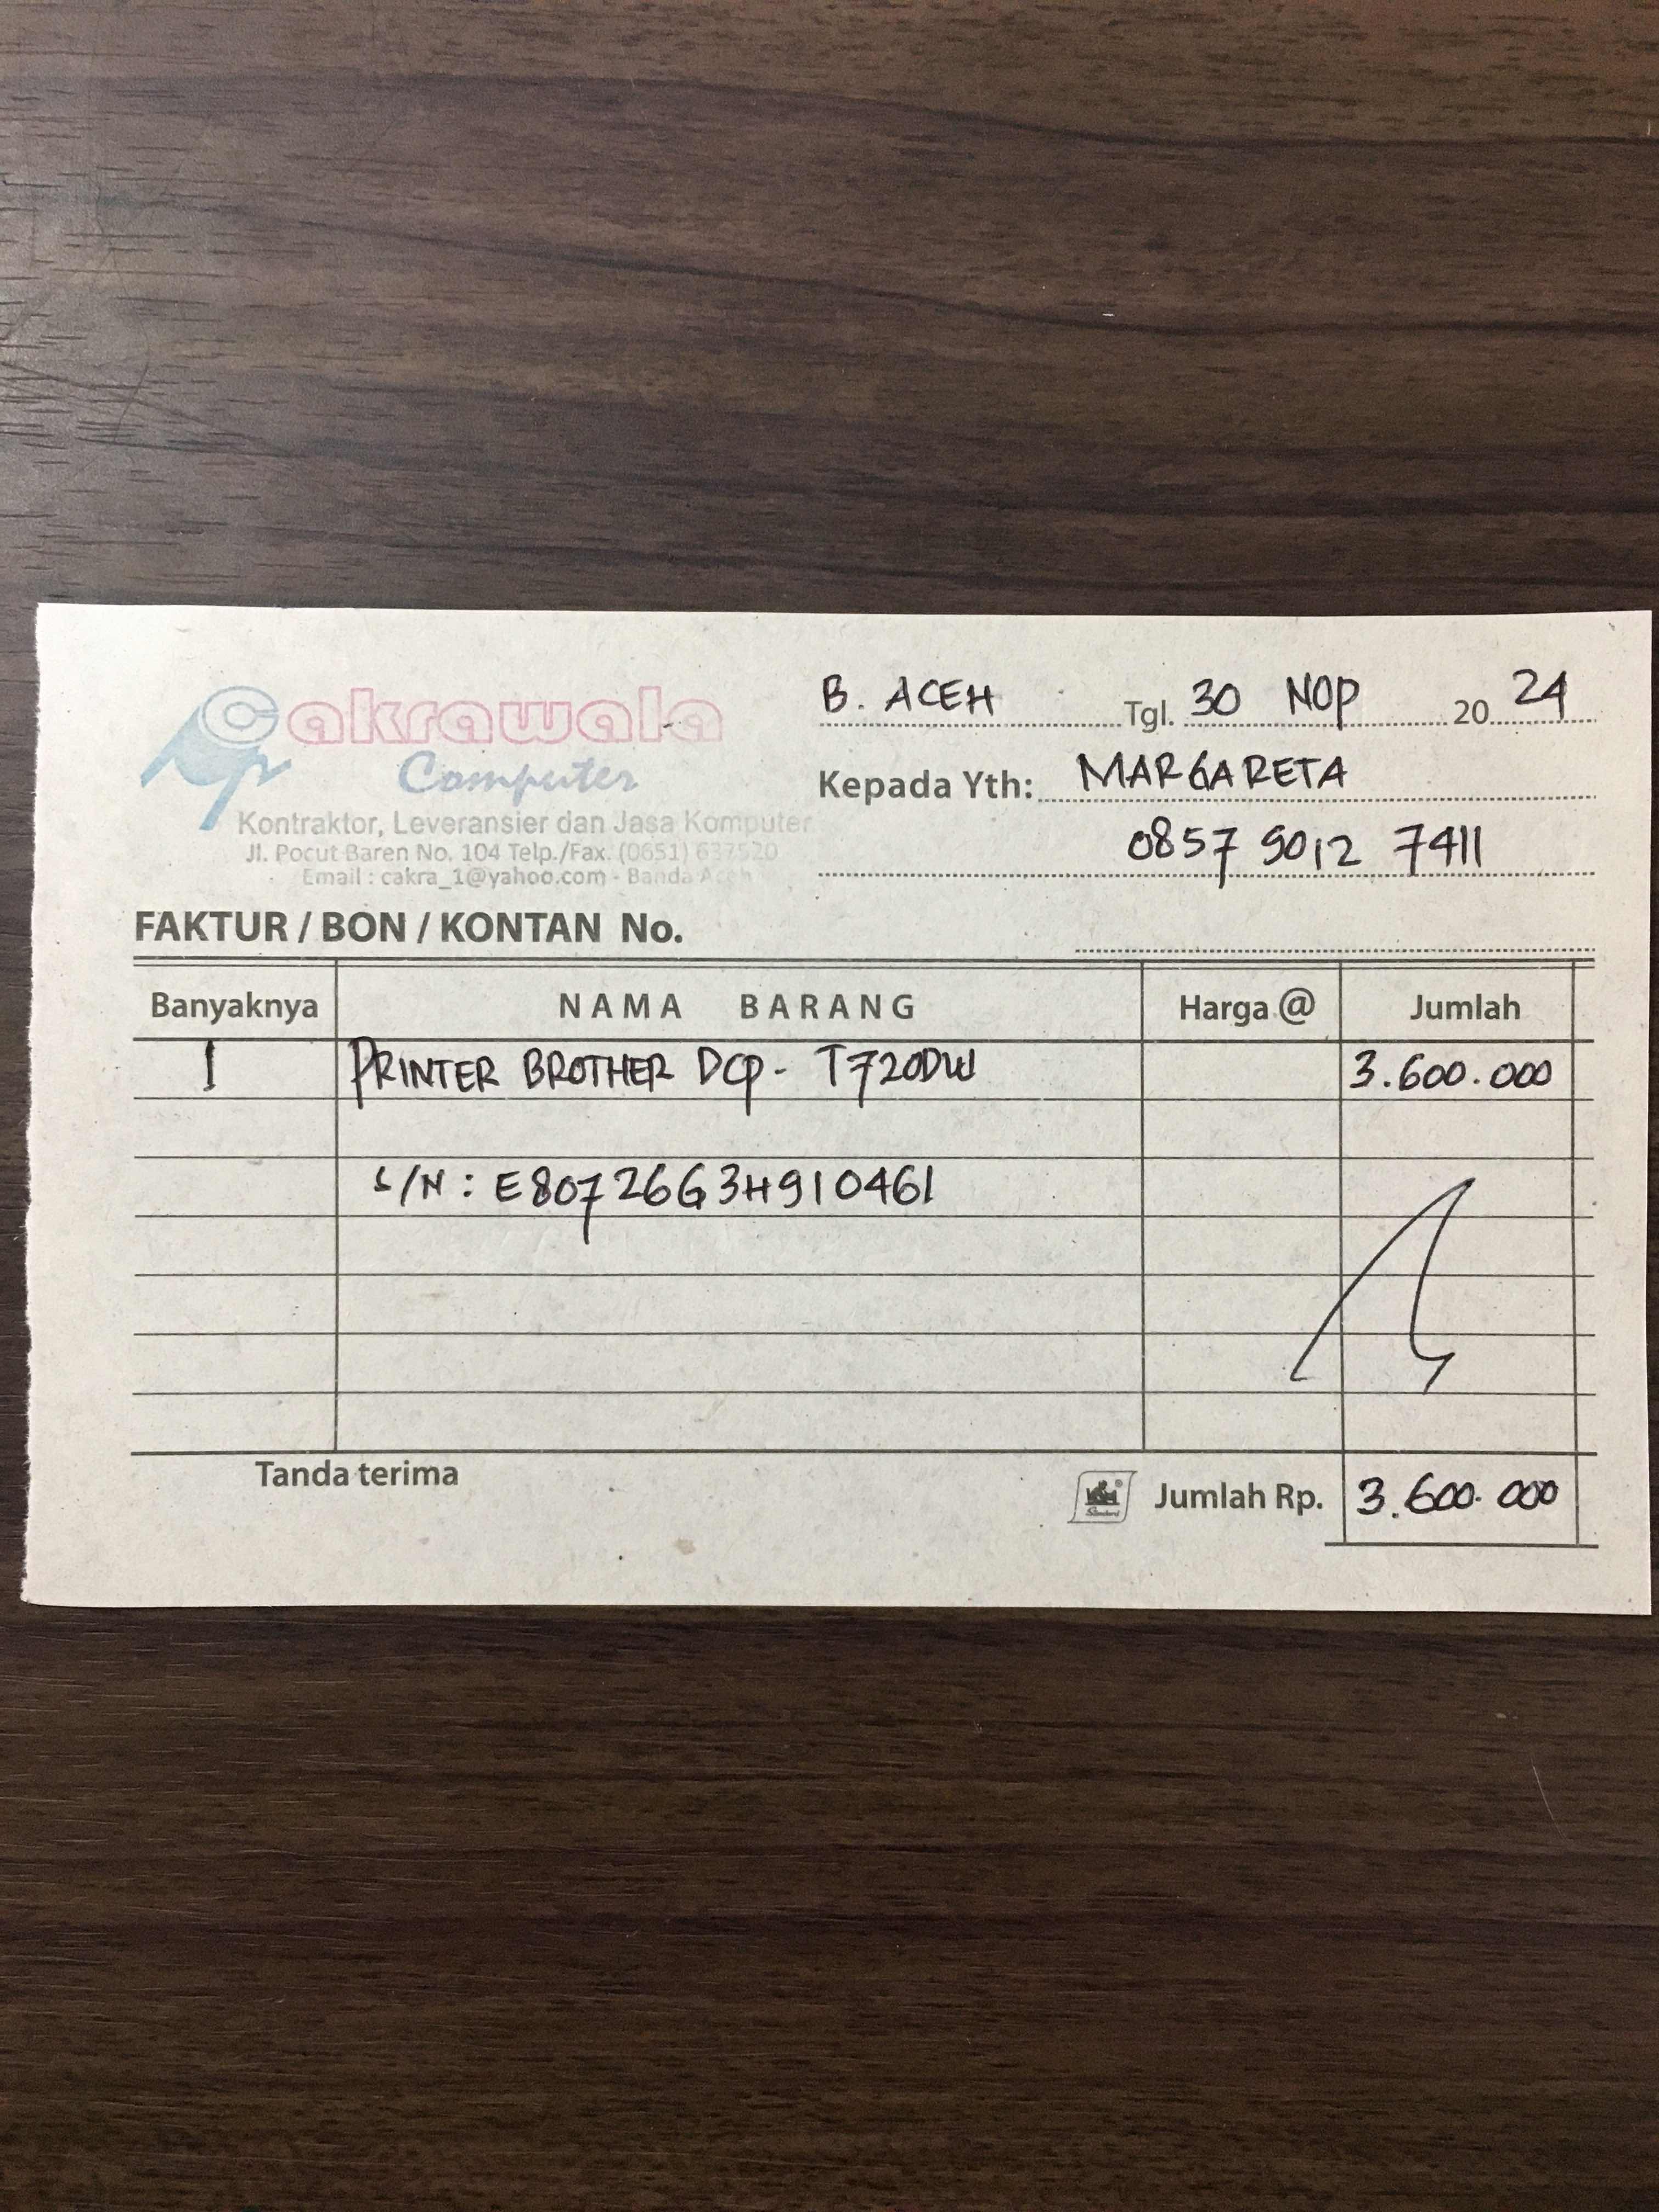 Cakrawala
Computer
Kontraktor, Leveransier dan Jasa Komputer
Jl. Pocut Baren No. 104 Telp./Fax. (0651) 637520
Email : cakra_1@yahoo.com - Banda Aceh
B. ACEH Tgl. 30 NOP 20 24
Kepada Yth: MARGARETA
0857 9012 7411
FAKTUR / BON / KONTAN No.
Banyaknya NAMA BARANG Harga @ Jumlah
1 PRINTER BROTHER DCP- T720DW 3.600.000
S/N : E80726G3H910461
Tanda terima Jumlah Rp. 3.600.000